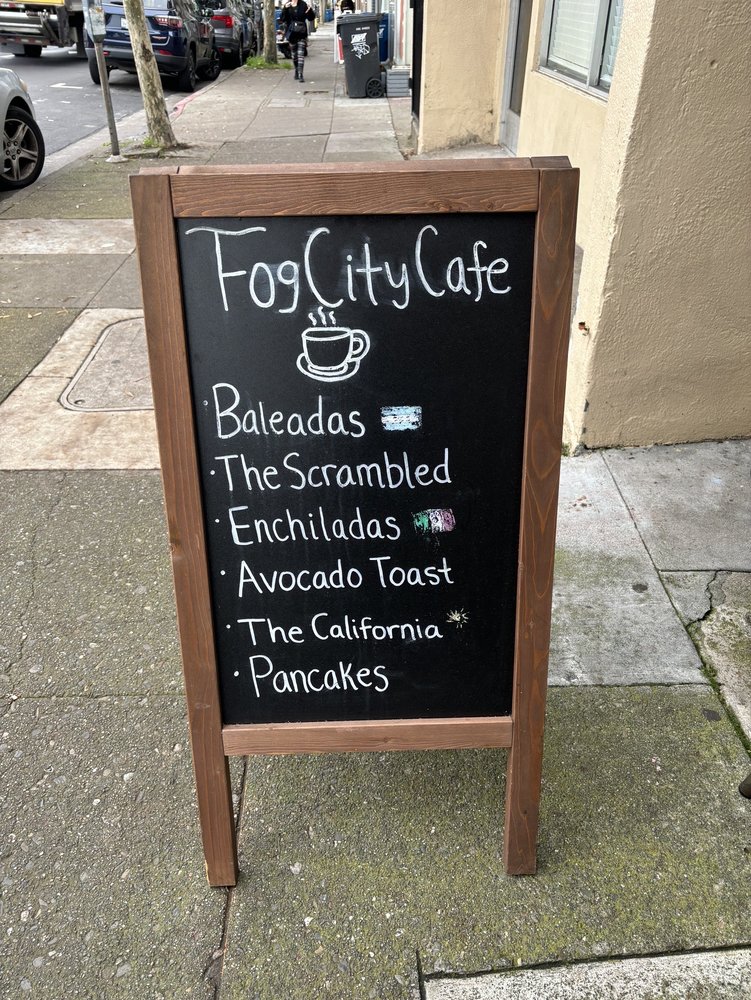 Fog City Cafe
· Baleadas
· The Scrambled
· Enchiladas
· Avocado Toast
· The California
· Pancakes